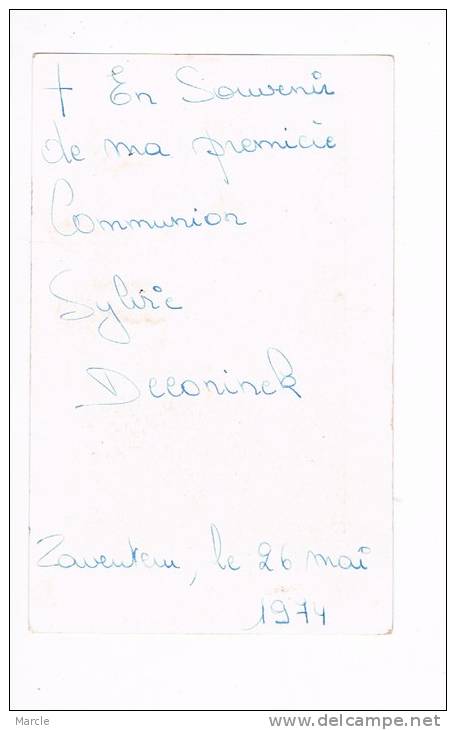 † En Souvenir
de ma première
Communion
Sylvie
Deconinck
Zaventem, le 26 mai
1974
Marcle
www.delcampe.net